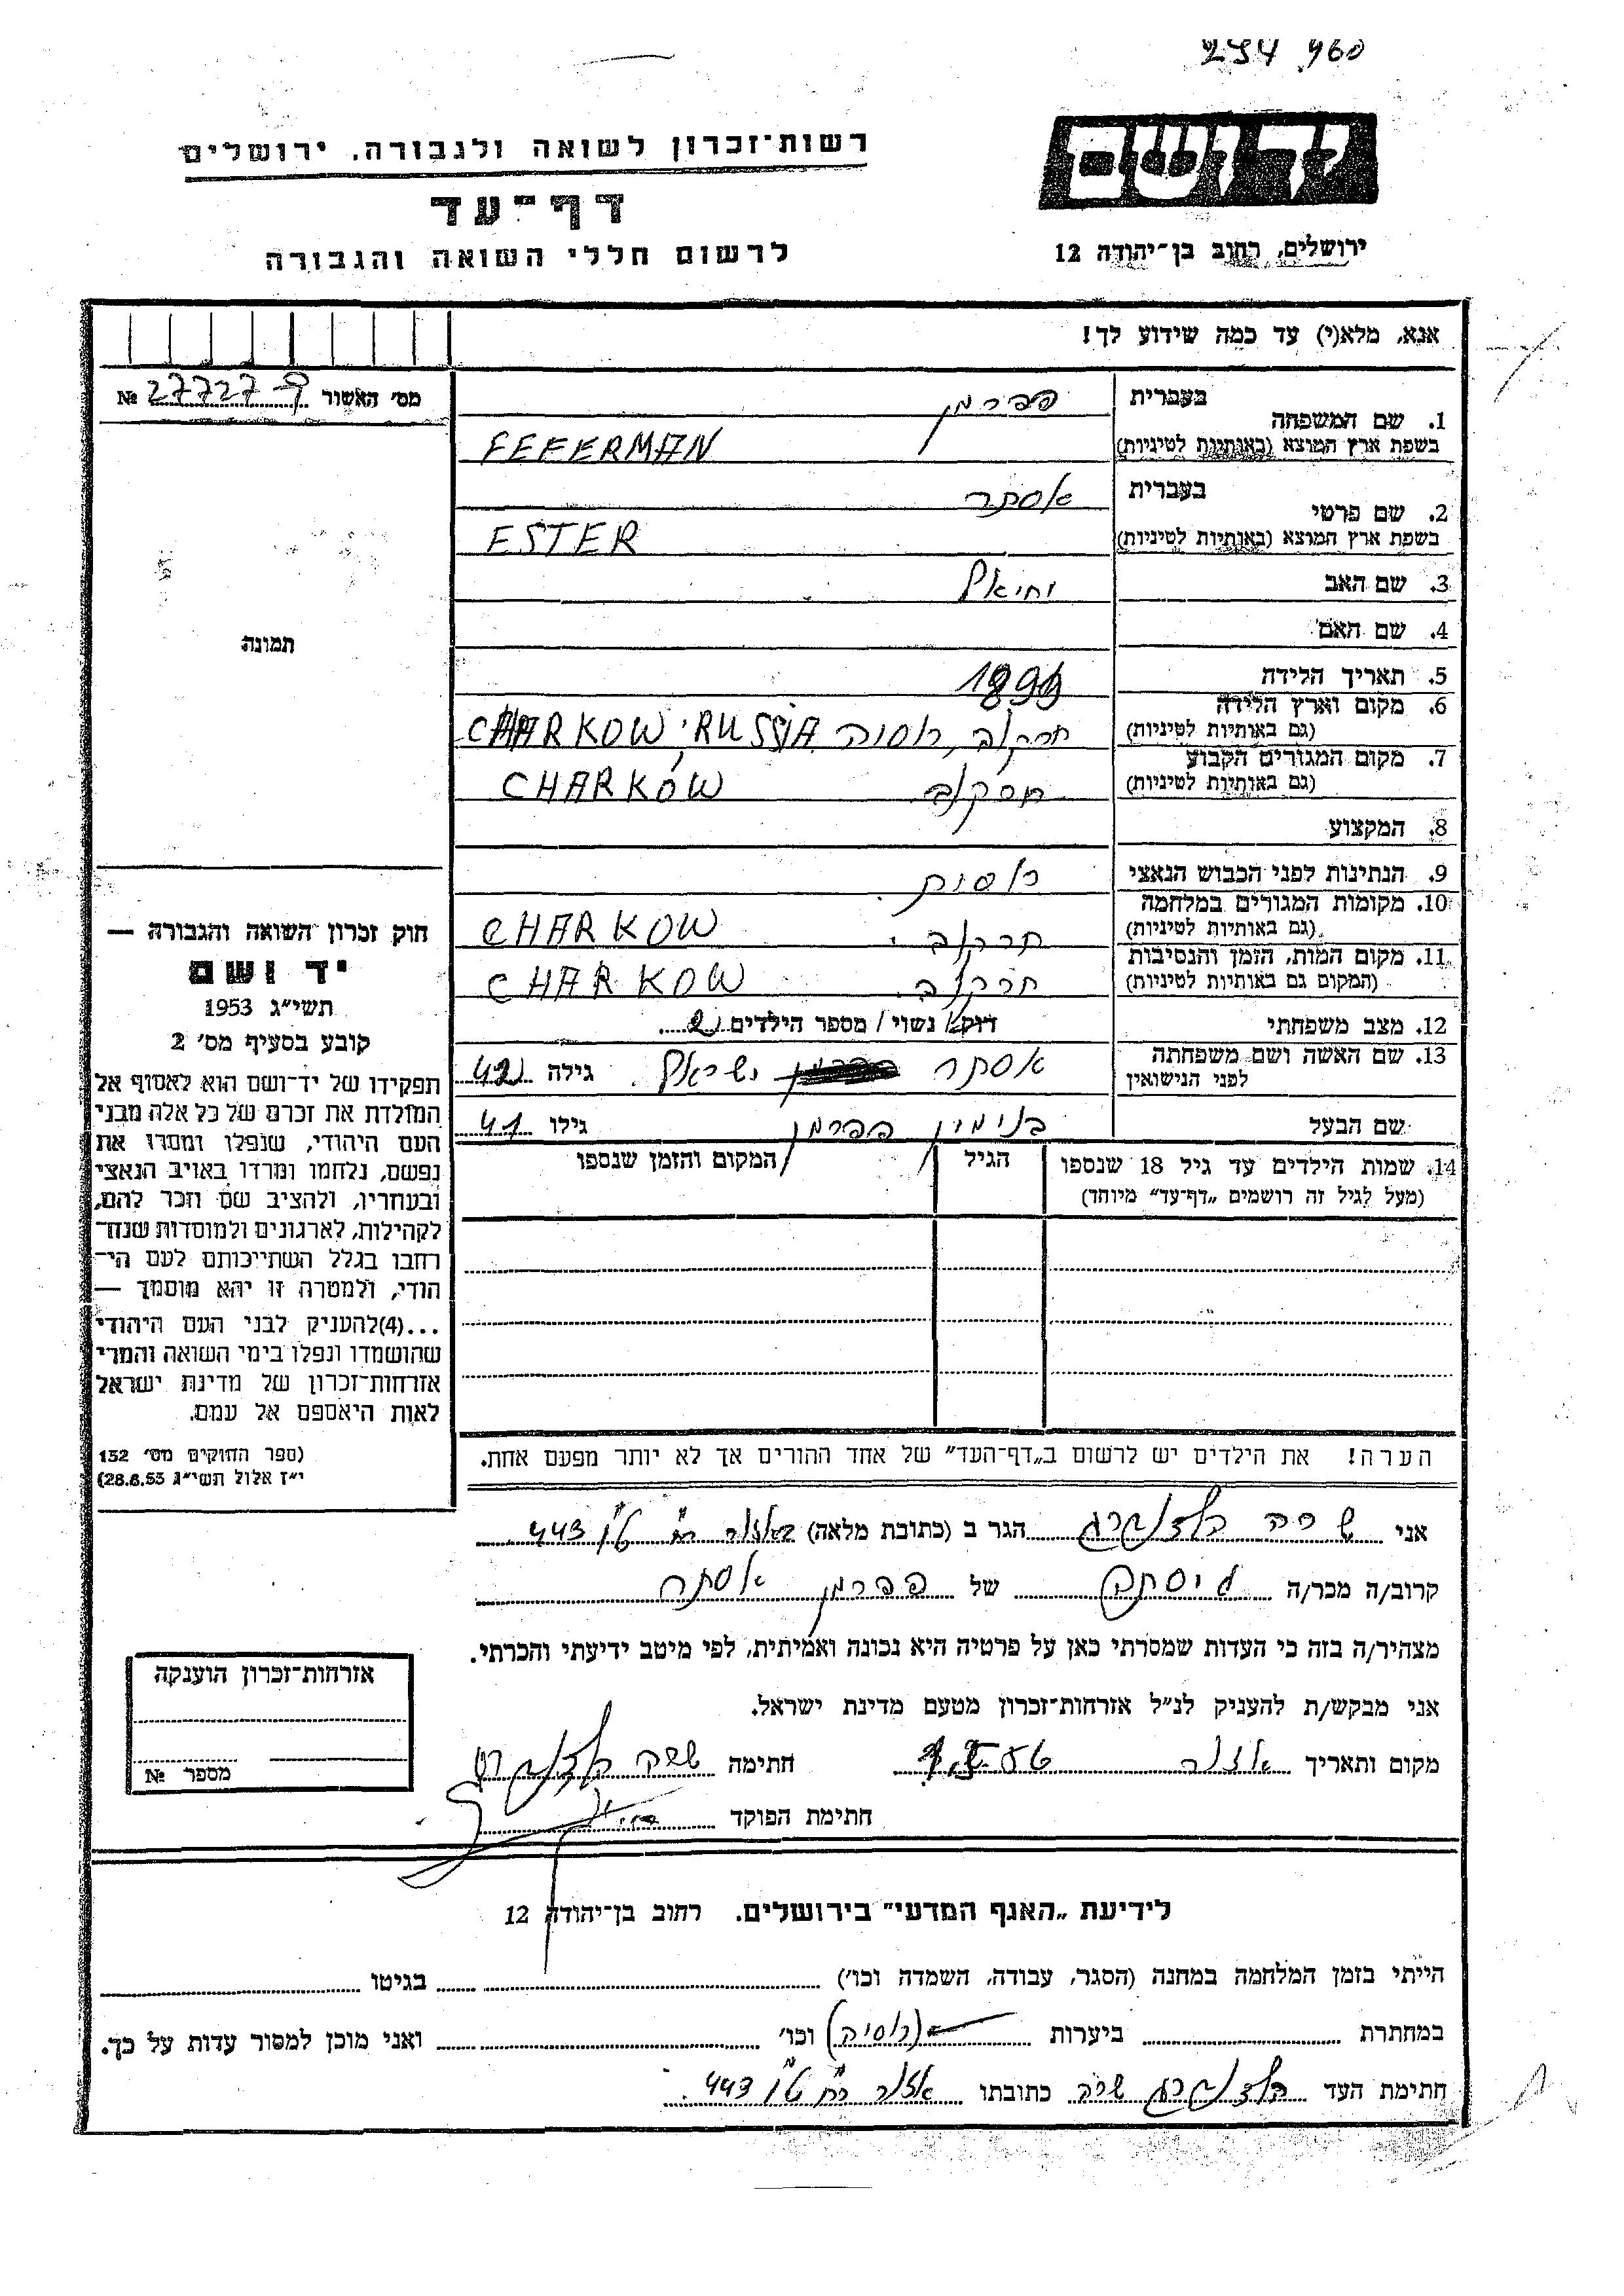 294 960
יד ושם
רשות־זכרון לשואה ולגבורה, ירושלים
דף־עד
לרשום חללי השואה והגבורה
ירושלים, רחוב בן־יהודה 12
אנא, מלא(י) עד כמה שידוע לך!
מס' האשור № 27727
1. שם המשפחה בעברית פפרמן
בשפת ארץ המוצא (באותיות לטיניות) FEFERMAN
2. שם פרטי בעברית אסתר
בשפת ארץ המוצא (באותיות לטיניות) ESTER
3. שם האב יחיאל
4. שם האם
תמונה
5. תאריך הלידה
6. מקום וארץ הלידה (גם באותיות לטיניות) חרקוב, רוסיה CHARKOW, RUSSIA
7. מקום המגורים הקבוע (גם באותיות לטיניות) חרקוב CHARKOW
8. המקצוע
9. הנתינות לפני הכבוש הנאצי רוסית
10. מקומות המגורים במלחמה (גם באותיות לטיניות) חרקוב. CHARKOW
11. מקום המות, הזמן והנסיבות (המקום גם באותיות לטיניות) חרקוב. CHARKOW
12. מצב משפחתי רווק/ נשוי / מספר הילדים 2
13. שם האשה ושם משפחתה לפני הנישואין אסתר ישראל. גילה 42
שם הבעל בנימין פפרמן גילו 41
14. שמות הילדים עד גיל 18 שנספו הגיל המקום והזמן שנספו
(מעל לגיל זה רושמים „דף־עד" מיוחד)
חוק זכרון השואה והגבורה —
יד ושם
תשי"ג 1953
קובע בסעיף מס' 2
תפקידו של יד־ושם הוא לאסוף אל
המולדת את זכרם של כל אלה מבני
העם היהודי, שנפלו ומסרו את
נפשם, נלחמו ומרדו באויב הנאצי
ובעוזריו, ולהציב שם וזכר להם,
לקהילות, לארגונים ולמוסדות שנח־
רבו בגלל השתייכותם לעם הי־
הודי, ולמטרה זו יהא מוסמך —
...(4)להעניק לבני העם היהודי
שהושמדו ונפלו בימי השואה והמרי
אזרחות־זכרון של מדינת ישראל
לאות היאספם אל עמם.
(ספר החוקים מס' 132
י"ז אלול תשי"ג 28.8.53)
הערה! את הילדים יש לרשום ב„דף־העד" של אחד ההורים אך לא יותר מפעם אחת.
אני שרה הגר ב (כתובת מלאה) 443
קרוב/ה מכר/ה גיסתה של פפרמן אסתר
מצהיר/ה בזה כי העדות שמסרתי כאן על פרטיה היא נכונה ואמיתית, לפי מיטב ידיעתי והכרתי.
אני מבקש/ת להעניק לנ"ל אזרחות־זכרון מטעם מדינת ישראל.
מקום ותאריך אזור חתימה שרה
חתימת הפוקד
אזרחות־זכרון הוענקה
מספר №
לידיעת „האגף המדעי" בירושלים. רחוב בן־יהודה 12
הייתי בזמן המלחמה במחנה (הסגר, עבודה, השמדה וכו') בגיטו
במחתרת ביערות (רוסיה) וכו' ואני מוכן למסור עדות על כך.
חתימת העד שרה כתובתו אזור 443.